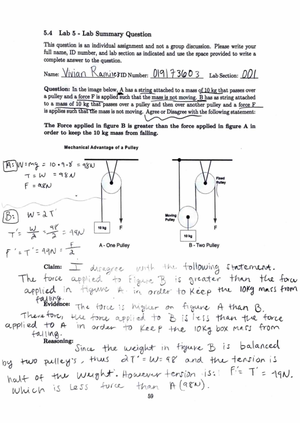 5.4 Lab 5 - Lab Summary Question
This question is an individual assignment and not a group discussion. Please write your
full name, ID number, and lab section as indicated and use the space provided to write a
complete answer to the question.
Name: Vivian Ramirez ID Number: 019173603 Lab Section: 001
Question: In the image below, A has a string attached to a mass of 10 kg that passes over
a pulley and a force F is applied such that the mass is not moving. B has a string attached
to a mass of 10 kg that passes over a pulley and then over another pulley and a force F
is applies such that the mass is not moving. Agree or Disagree with the following statement:
The Force applied in figure B is greater than the force applied in figure A in
order to keep the 10 kg mass from falling.
Mechanical Advantage of a Pulley
A: W=mg = 10×9.8 = 98N
T = W = 98N
F = 98N
Fixed
Pulley
B: W = 2T'
T' = W/2 = 98/2 = 49N
F' = T' = 49N = F/2
F
Moving
Pulley
F
10 kg
10 kg
A - One Pulley
B - Two Pulley
Claim: I disagree with the following statement.
The force applied to figure B is greater than the force
applied in figure A in order to keep the 10kg mass from
falling.
Evidence: The force is higher on figure A than B.
Therefore, the force applied to B is less than the force
applied to A in order to keep the 10kg box mass from
falling.
Reasoning:
Since the weight in figure B is balanced
by two pulley's, thus 2T' = W = 98 and the tension is
half of the weight. However tension is: F' = T' = 49N.
which is less force than A (98N).
10